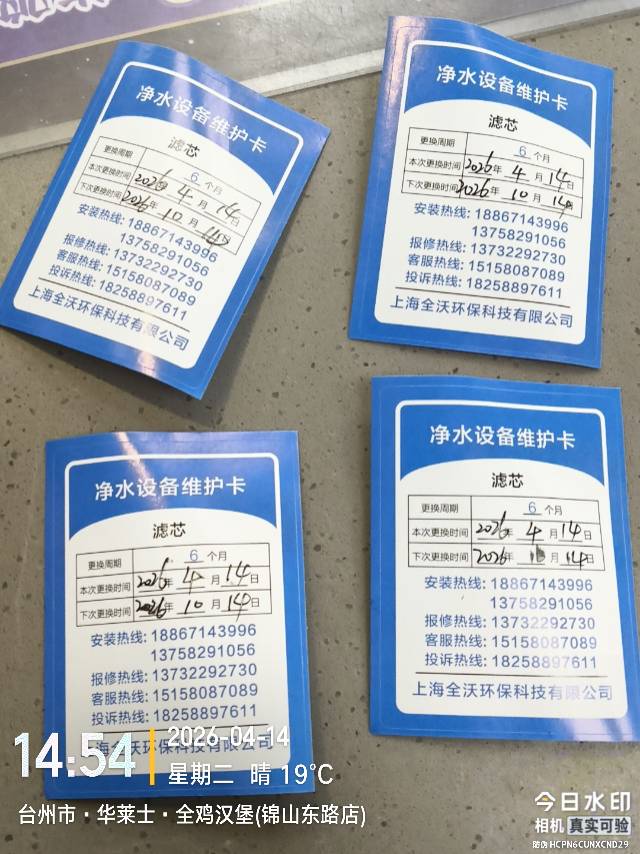 净水设备维护卡
滤芯
更换周期 6 个月
本次更换时间 2026年 4 月 14日
下次更换时间 2026年 10 月 14日
安装热线: 18867143996
13758291056
报修热线: 13732292730
客服热线: 15158087089
投诉热线: 18258897611
上海全沃环保科技有限公司
净水设备维护卡
滤芯
更换周期 6 个月
本次更换时间 2026年 4 月 14日
下次更换时间 2026年 10 月 14日
安装热线: 18867143996
13758291056
报修热线: 13732292730
客服热线: 15158087089
投诉热线: 18258897611
上海全沃环保科技有限公司
净水设备维护卡
滤芯
更换周期 6 个月
本次更换时间 2026年 4 月 14日
下次更换时间 2026年 10 月 14日
安装热线: 18867143996
13758291056
报修热线: 13732292730
客服热线: 15158087089
投诉热线: 18258897611
上海全沃环保科技有限公司
净水设备维护卡
滤芯
更换周期 6 个月
本次更换时间 2026年 4 月 14日
下次更换时间 2026年 月 14日
安装热线: 18867143996
13758291056
报修热线: 13732292730
客服热线: 15158087089
投诉热线: 18258897611
上海全沃环保科技有限公司
14:54
2026-04-14
星期二 晴 19℃
台州市·华莱士·全鸡汉堡(锦山东路店)
今日水印
相机 真实可验
防伪 HCPN6CUNXCND29